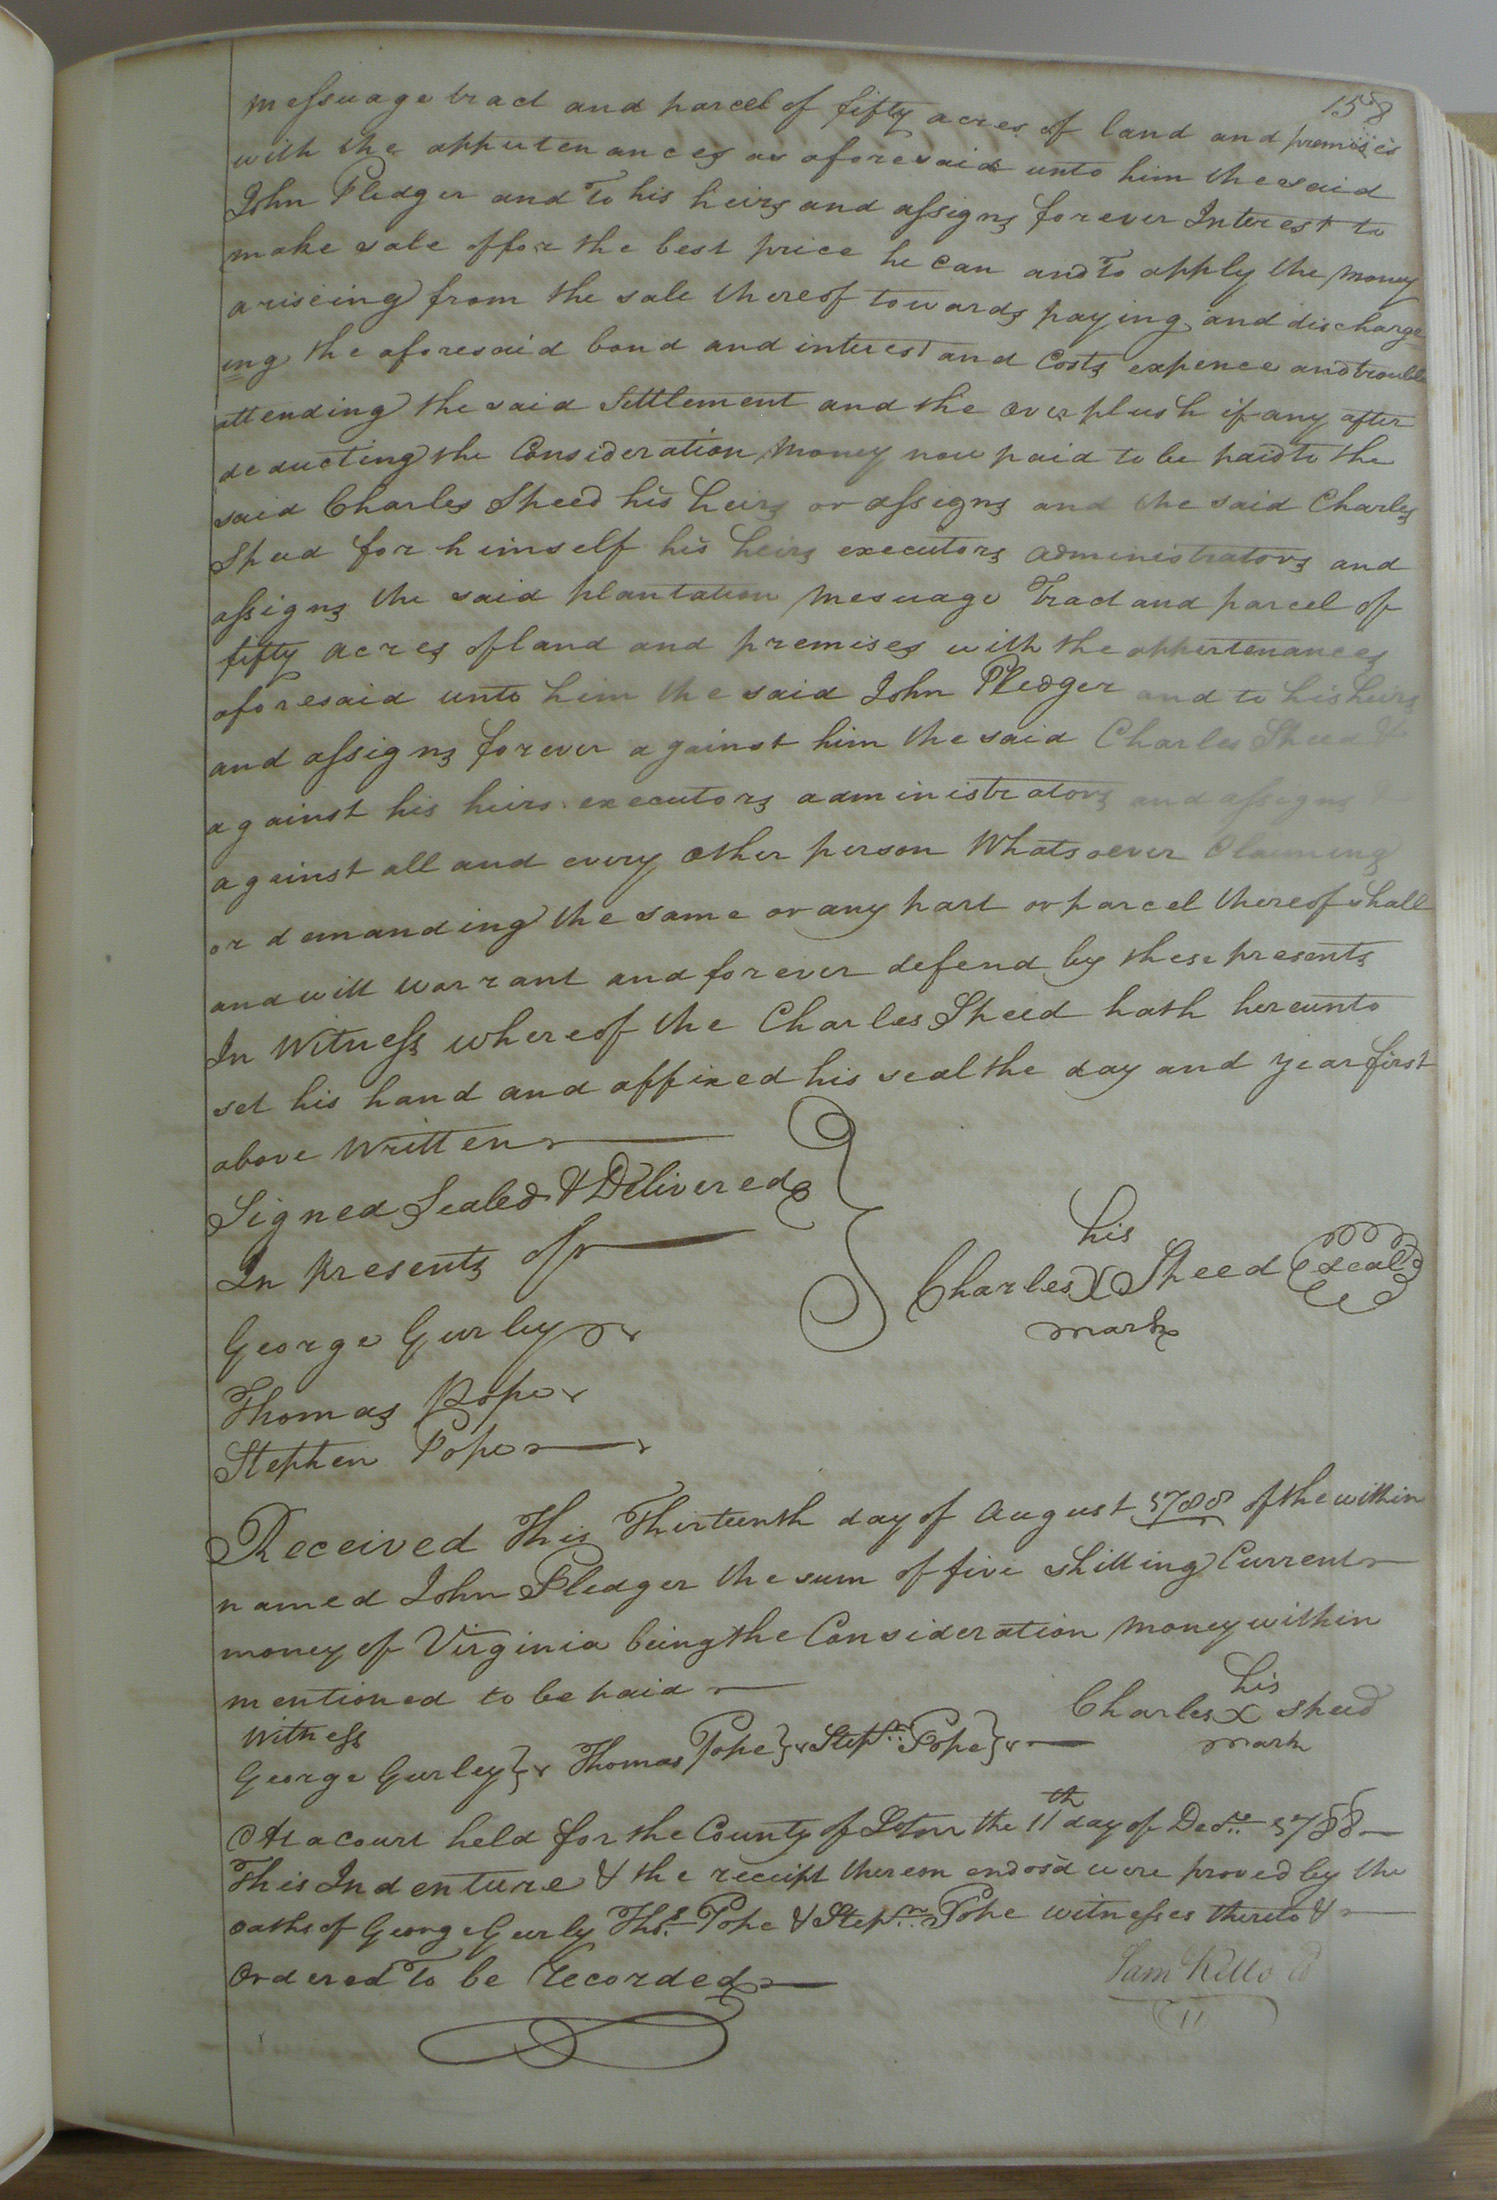 158
messuage tract and parcel of fifty acres of land and premisies
with the apputenances as aforesaid unto him the said
John Pledger and To his heirs and assigns forever Interest to
make sale offor the best price he can and To apply the money
ariseing from the sale thereof towards paying and discharge
ing the aforesaid bond and interest and Costs expence and trouble
attending the said Settlement and the overplush if any after
deducting the Consideration money now paid to be paid to the
said Charles Speed his heirs or assigns and the said Charles
Speed for himself his heirs executors administrators and
assigns the said plantation mesuage Tract and parcel of
fifty acres of land and premises with the appertenances
aforesaid unto him the said John Pledger and to his heirs
and assigns forever against him the said Charles Speed &
against his heirs executors administrators and assigns &
against all and every other person Whatsoever Claiming
or demanding the same or any part or parcel thereof shall
and will warrant and forever defend by these presents
In Witness whereof the Charles Speed hath hereunto
set his hand and affixed his seal the day and year first
above Written
Signed Sealed & Delivered
In presents of
his
Charles X Speed seal
mark
George Gurley
Thomas Pope
Stephen Pope
Received This Thirteenth day of August 1788 of the within
named John Pledger the sum of five shilling Current
money of Virginia being the Consideration money within
mentioned to be paid
his
Charles X Speed
mark
Witness
George Gurley Thomas Pope Stepn. Pope
At a court held for the County of Soton the 11th day of Decr. 1788
This Indenture & the receipt thereon endosd were proved by the
oaths of George Gurly Thos. Pope & Stepn. Pope witnesses thereto &
Ordered To be recorded
Sam Kello